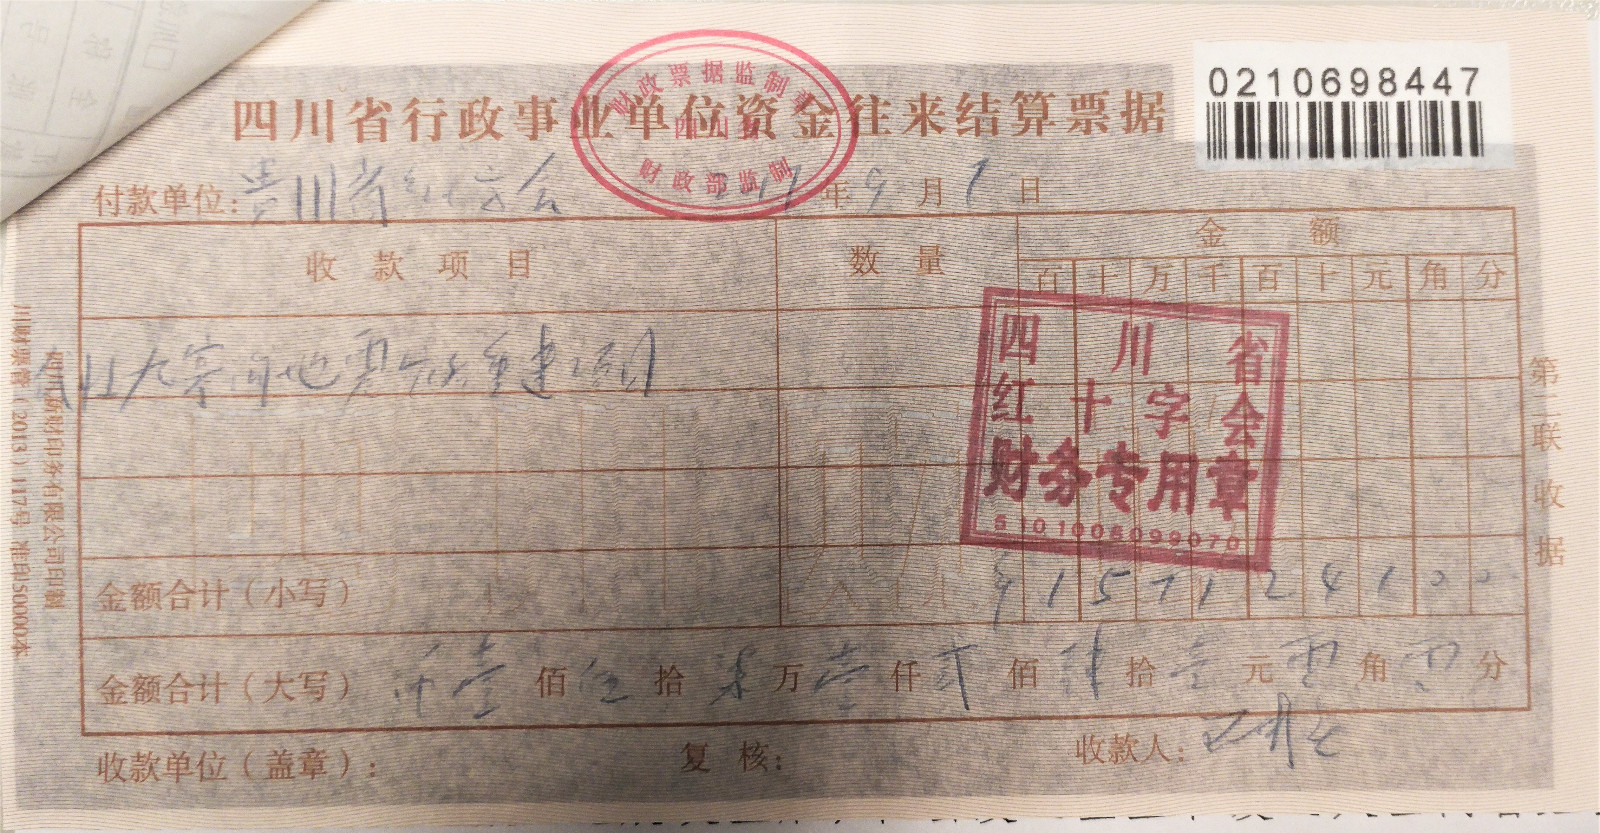 0210698447
四川省行政事业单位资金往来结算票据
财政票据监制章
四川省
财政部监制
付款单位: 贵州省红十字会 年 9 月 1 日
收款项目 数量 金额
百 十 万 千 百 十 元 角 分
九寨沟地震灾后重建项目
四川省
红十字会
财务专用章
5101006099070
金额合计（小写） ¥ 1 5 7 1 2 4 1 0 0
金额合计（大写） 壹佰伍拾柒万壹仟贰佰肆拾壹元零角零分
收款单位（盖章）: 复核: 收款人:
第二联收据
川财票管（2013）117号 准印50000本